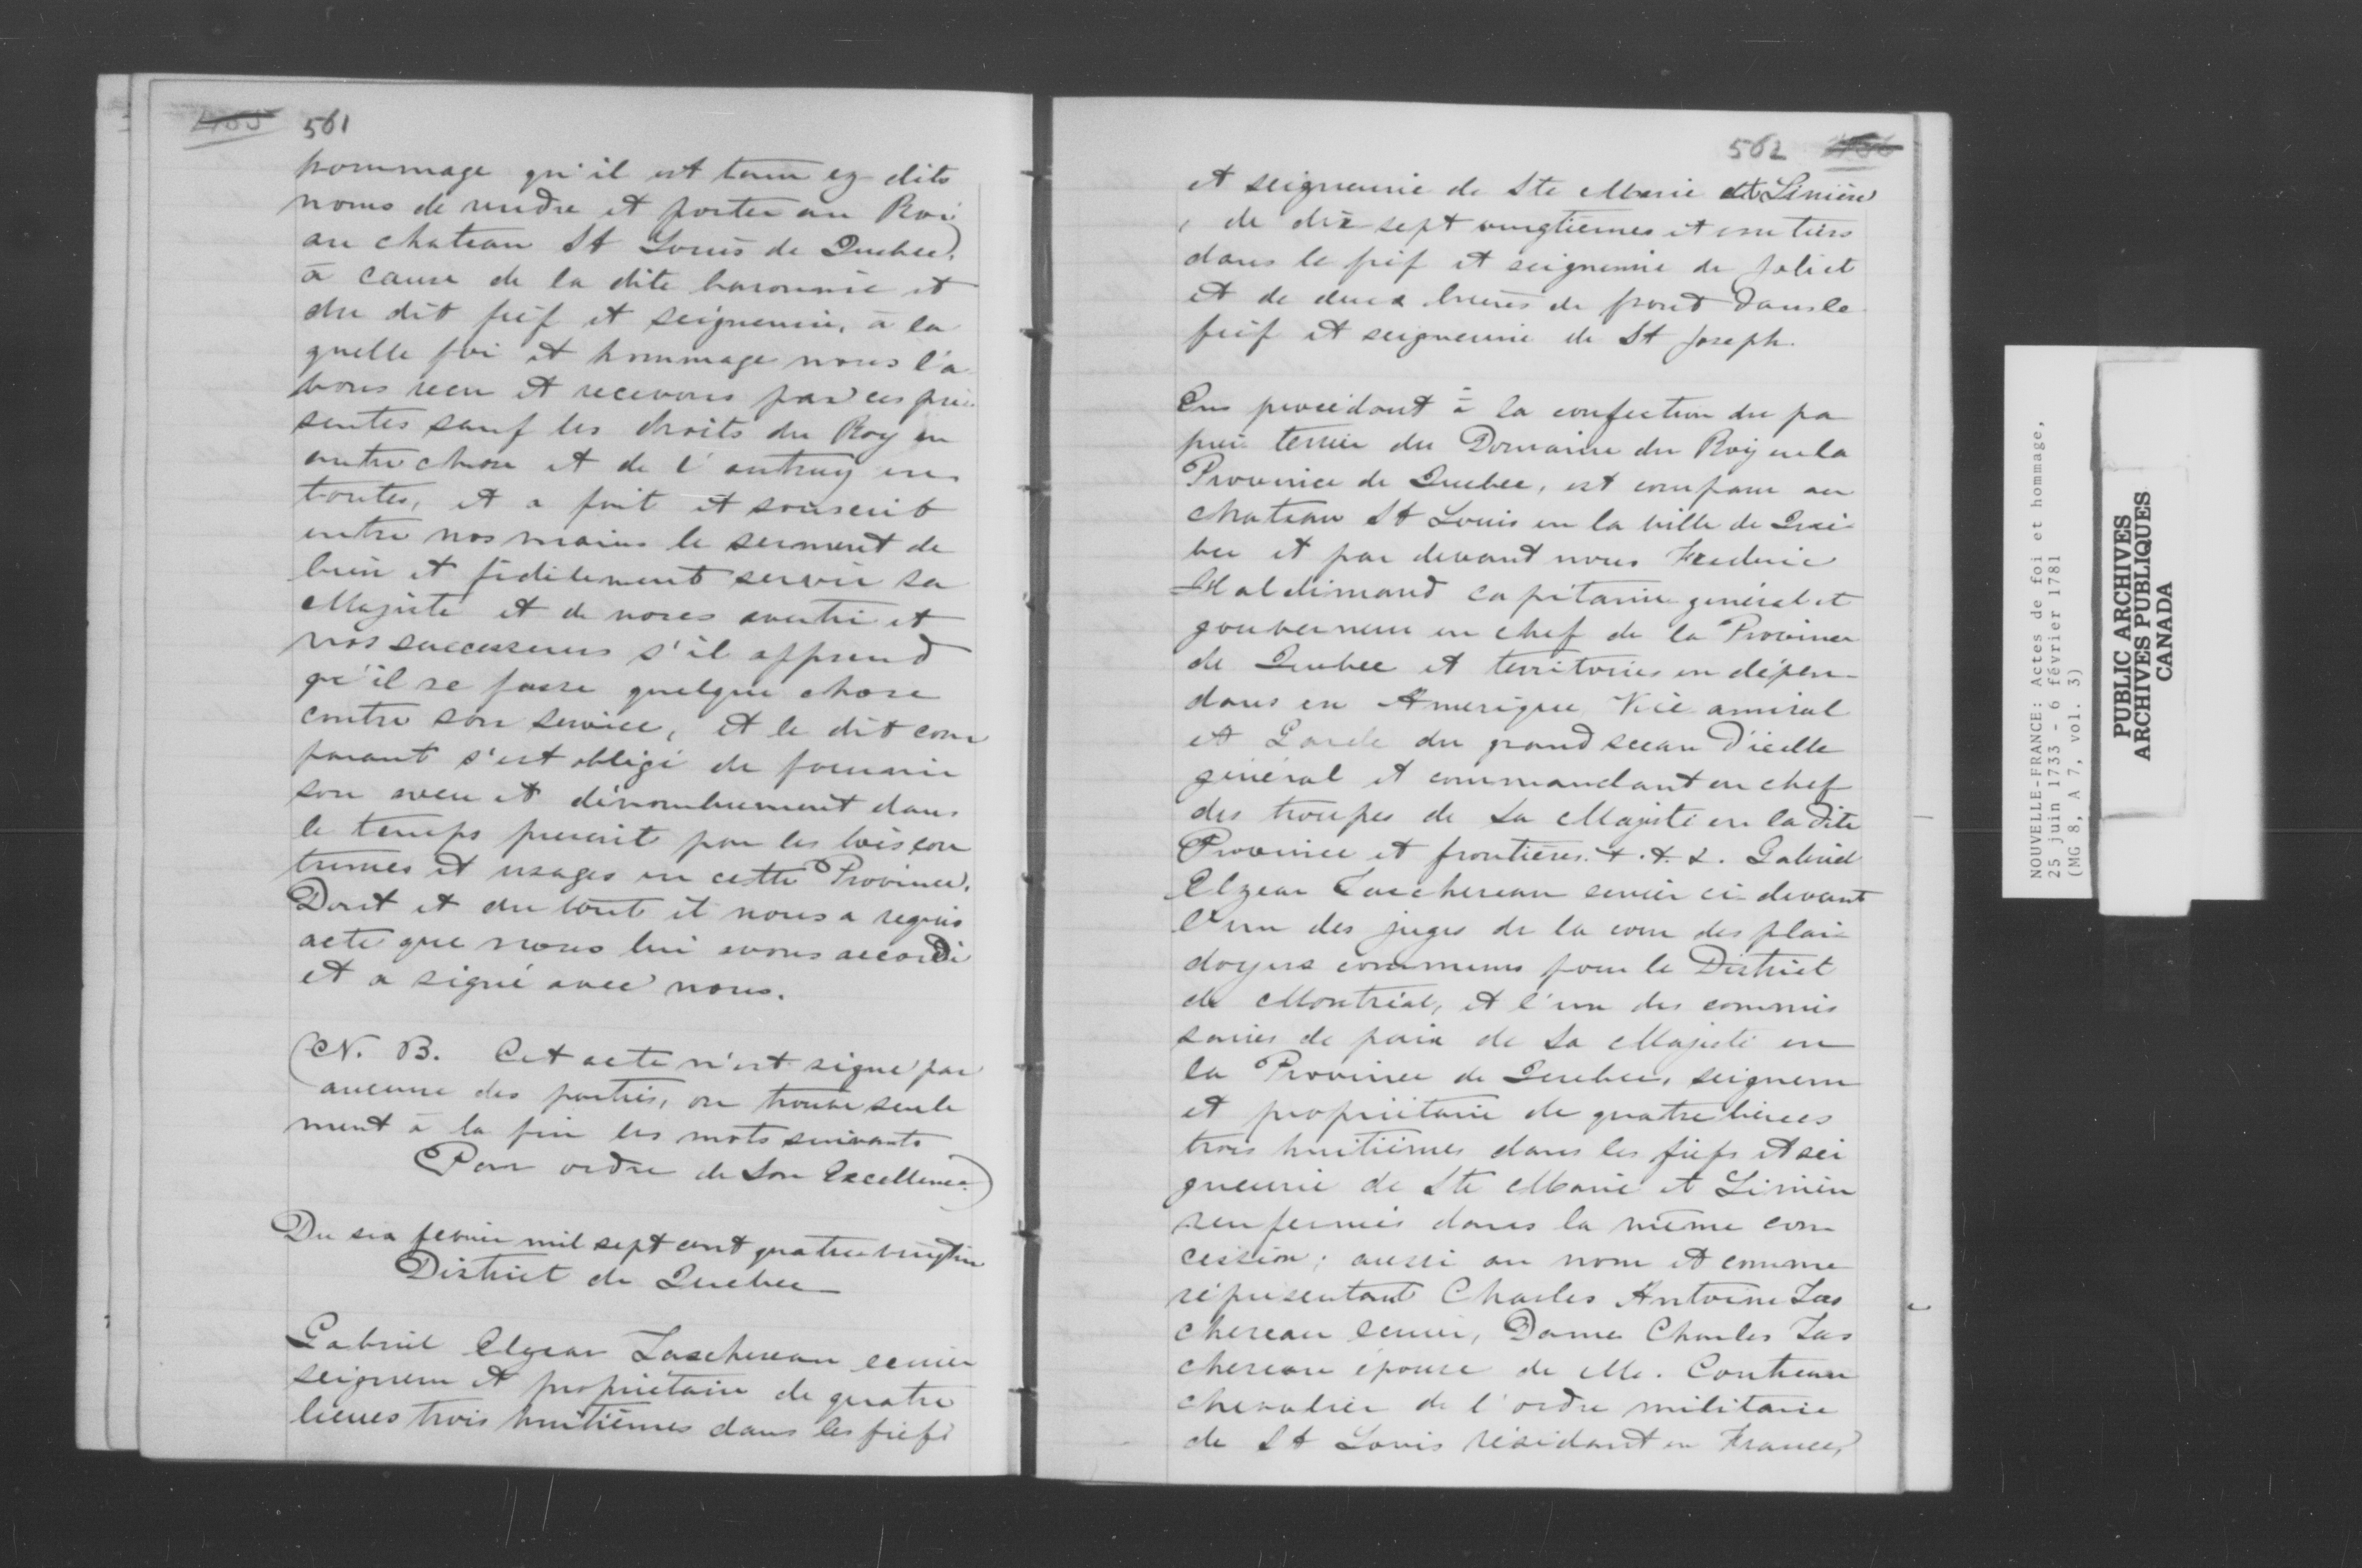 561
hommage qu'il est tenu ez dits
noms de rendre et porter au Roi
au chateau St Louis de Quebec,
à cause de la dite baronnie et
du dit fief et seigneurie, à la
quelle foi et hommage nous l'a
vons reçu et recevons par ces pré
sentes sauf les droits du Roy en
autre chose et de l'autruy en
toutes, et a fait et souscrit
entre nos mains le serment de
bien et fidèlement servir sa
Majesté et de nous avertir et
nos successeurs s'il apprend
qu'il se fasse quelque chose
contre son service, et le dit com
parant s'est obligé de fournir
son aveu et dénombrement dans
le temps prescrit par les lois cou
tumes et usages en cette Province.
Dont et du tout il nous a requis
acte que nous lui avons accordé
et a signé avec nous.
(N. B. Cet acte n'est signé par
aucune des parties, on trouve seule
ment à la fin les mots suivants
Par ordre de Son Excellence)
Du six fevrier mil sept cent quatre vingt un
District de Quebec
Gabriel Elzear Taschereau ecuier
seigneur et propriétaire de quatre
lieues trois huitièmes dans les fiefs
562
et seigneurie de Ste Marie et Linière
, de dix sept vingtièmes et un tiers
dans le fief et seigneurie de Joliet
et de deux lieues de front dans le
fief et seigneurie de St Joseph.
En procédant à la confection du pa
pier terrier du Domaine du Roy en la
Province de Quebec, est comparu au
chateau St Louis en la ville de Qué-
bec et par devant nous Frederic
Haldimand capitaine général et
gouverneur en chef de la Province
de Quebec et territoires en dépen-
dans en Amerique Vice amiral
et Garde du grand sceau d'icelle
général et commandant en chef
des troupes de Sa Majesté en la dite
Province et frontières. &. &. &. Gabriel
Elzear Taschereau ecuier ci-devant
l'un des juges de la cour des plai-
doyers communs pour le District
de Montréal, et l'un des commis
saires de paix de Sa Majesté en
la Province de Quebec, seigneur
et propriétaire de quatre lieues
trois huitièmes dans les fiefs et sei
gneurie de Ste Marie et Linière
renfermés dans la même con
cession; aussi au nom et comme
réprésentant Charles Antoine Tas
chereau ecuier, Dame Charles Tas
chereau épouse de M.
chevalier de l'ordre militaire
de St Louis résidant en France,
NOUVELLE-FRANCE: Actes de foi et hommage,
25 juin 1733 - 6 février 1781
(MG 8, A 7, vol. 3)
PUBLIC ARCHIVES
ARCHIVES PUBLIQUES
CANADA